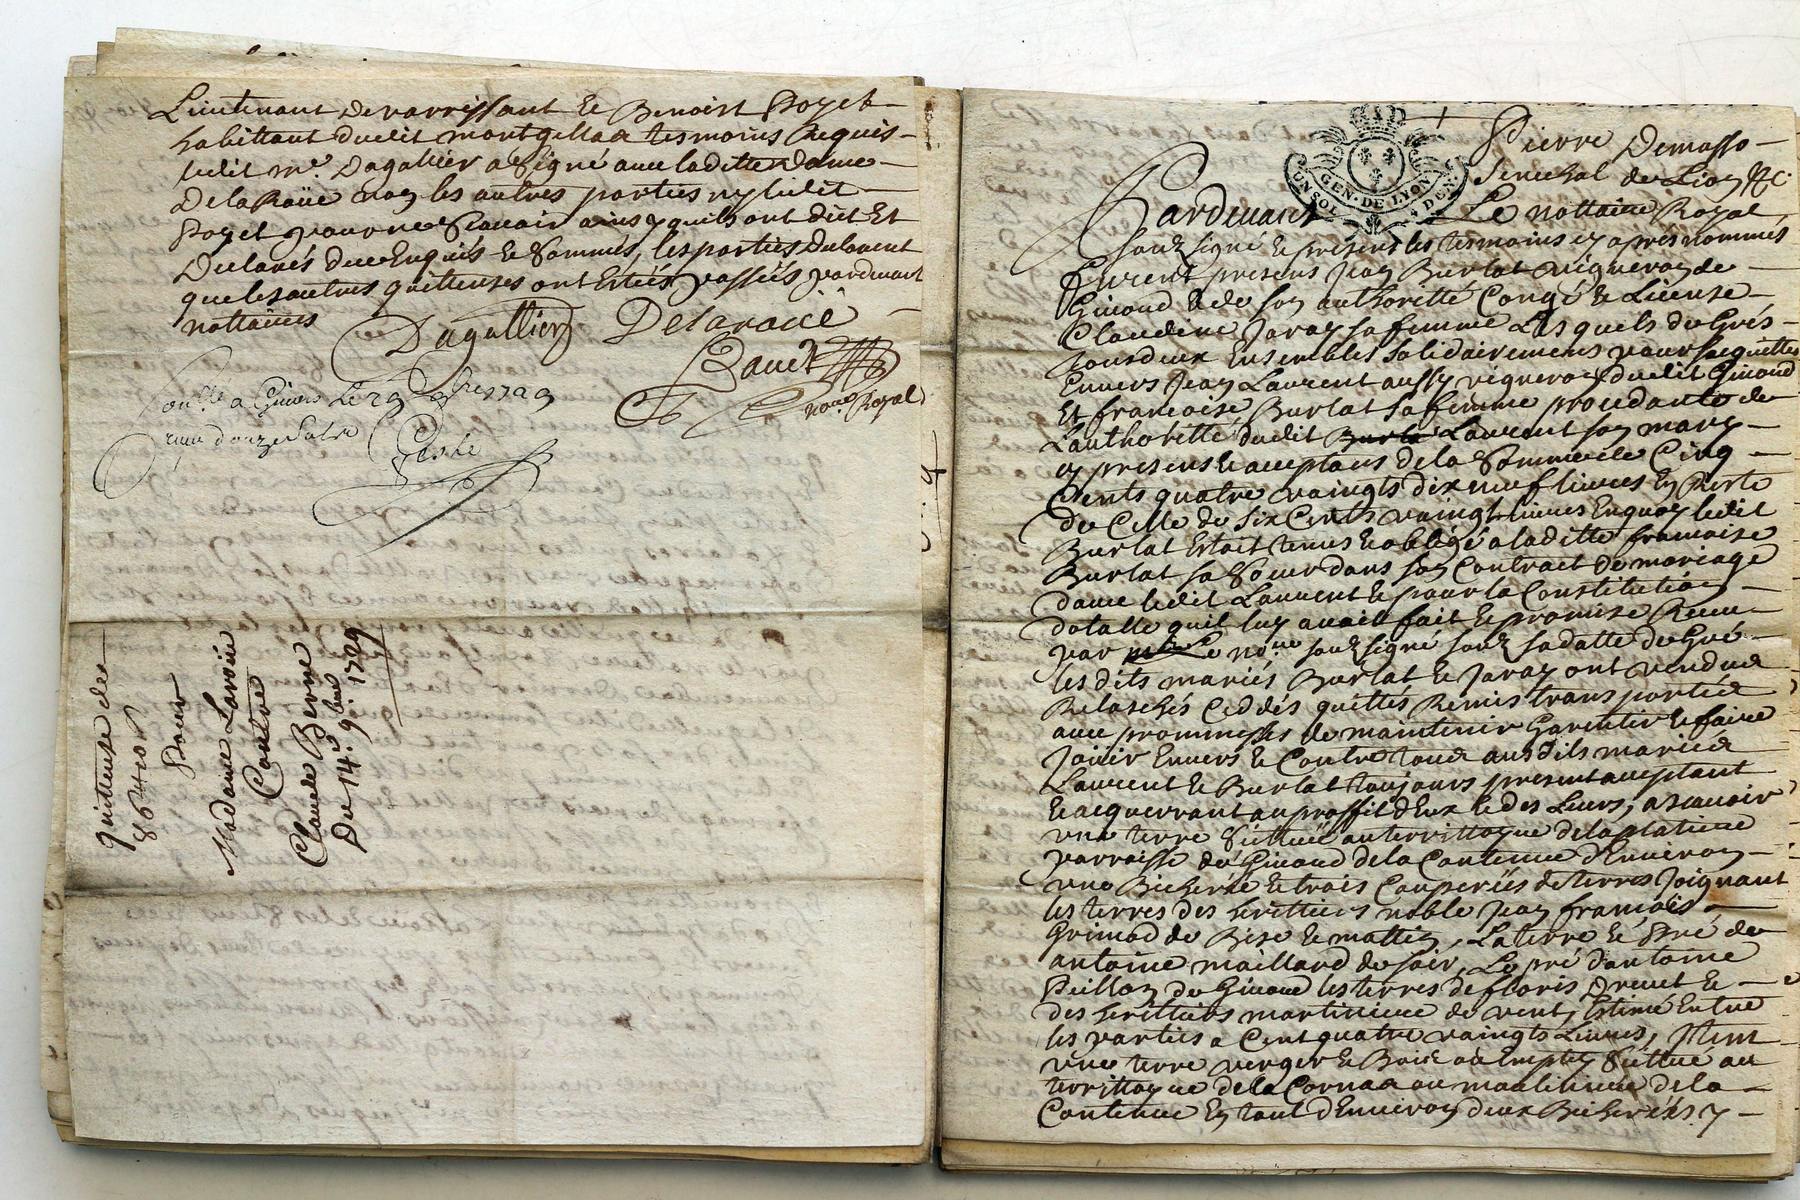 Lieutenant de parroissant et Benoist Poyet
habittant dudit montgellaa tesmoins Requis
ledit mr. Dagallier a signé avec laditte dame
de la Roüe non les autres parties ny ledit
Poyet pour ne scavoir ainsy quils ont dict Et
Declarés de ce Enquis et Sommés, les parties
que les autres quittenses ont Estées passées pardevant
nottaires
Dagallier Delaroüe
no.re Royal
quittense de
Pour
Madame Laroüe
Contre
Claude Berne
Du 14.e 9.bre 1709
Pierre Demasso
Senechal de Lion &c.
GEN. DE LYON
UN SOL 4 DEN.
Pardevant Le nottaire Royal
souz signé et presens les tesmoins cy apres nommés
furent presens Jean Burlat vigneron de
Givord et de son authoritté Congé et License
Claudine Jaray sa femme Lesquels de Grés
tous deux Ensembles solidairement pour
Envers Jean Laurent aussy vigneron dudit Givord
Et francoise Burlat sa femme procedante de
Lauthoritté dudit Laurent son mary
cy presens et acceptans de la Somme de Cinq
Cents quatre vaingts dix neuf livres En Reste
de Celle de six Cents vaingt livres En quoy ledit
Burlat Estoit tenus et obligé a laditte francoise
Burlat sa Soeur dans son Contract de mariage
avec ledit Laurent et pour la Constitution
dotalle quil luy avoit fait et promise Receu
par Le no.re souz signé souz sa datte de Gré
les dits mariés Burlat et Jaray ont vendus
Relaschés Ceddés quittés Remis transportés
avec prommesses de maintenir Garentir et faire
Joüir Envers et Contre tous ausdits mariés
Laurent et Burlat toujours present acceptant
et acquerrant au proffit d'Eux et des Leurs, a scavoir
une terre Scittuée au territtoyre de la platiere
parroisse de Givord de la Contenue d'Environ
une Bicherée et trois Coupées de terre Joignant
les terres des herittiers noble Jean francois
Grimod de Bise et mattin, La terre et Pré de
antoine maillard de soir, Le pré dantoine
Peillon de Givord les terres de floris Drevet et
des herittiers martiniere de vent, Estimé Entre
les parties a Cent quatre vaingts Livres, Item
une terre verger et Bois Scittue au
territtoyre de la Cornaa ou
Contenue En tout d'Environ deux Bicherées y